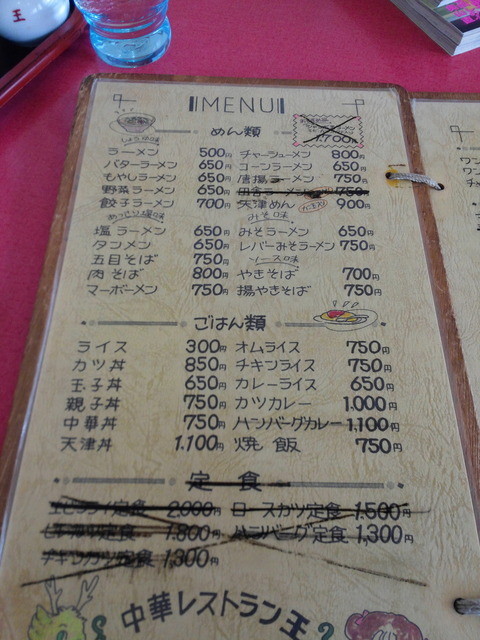 王
MENU
めん類
700円
しょうゆ味
ラーメン 500円 チャーシューメン 800円
バターラーメン 650円 コーンラーメン 650円
もやしラーメン 650円 唐揚ラーメン 750円
野菜ラーメン 650円 田舎ラーメン 750円
餃子ラーメン 700円 天津めん 900円
あっさり塩味 みそ味
塩ラーメン 650円 みそラーメン 650円
タンメン 650円 レバーみそラーメン 750円
五目そば 750円 ソース味
肉そば 800円 やきそば 700円
マーボーメン 750円 揚やきそば 750円
ごはん類
ライス 300円 オムライス 750円
カツ丼 850円 チキンライス 750円
玉子丼 650円 カレーライス 650円
親子丼 750円 カツカレー 1,000円
中華丼 750円 ハンバーグカレー 1,100円
天津丼 1,100円 焼飯 750円
定食
エビフライ定食 2,000円 ロースカツ定食 1,500円
ヒレカツ定食 1,800円 ハンバーグ定食 1,300円
チキンカツ定食 1,300円
中華レストラン王
ワン
ワン
チャ